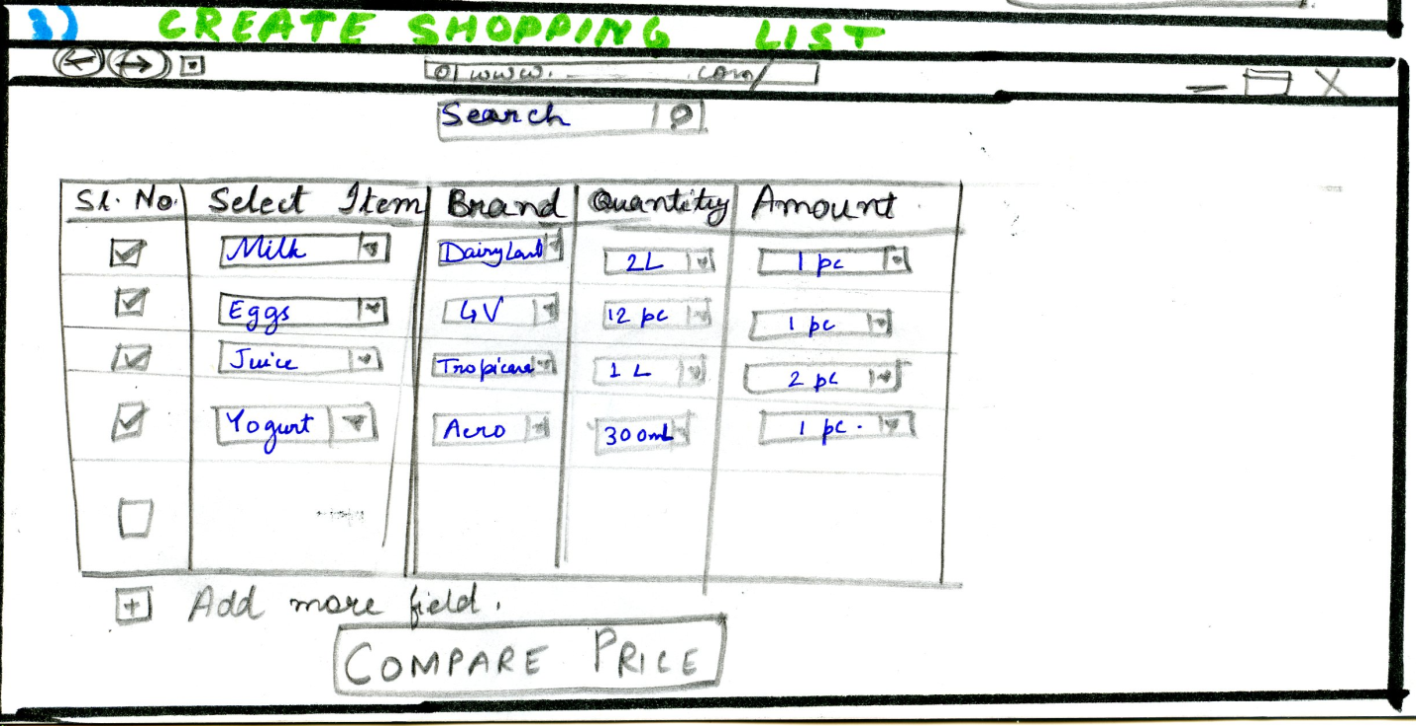 3) CREATE SHOPPING LIST
www. .com/
Search
Sl. No. Select Item Brand Quantity Amount
Milk DairyLand 2L 1 pc
Eggs GV 12 pc 1 pc
Juice Tropicana 1 L 2 pc
Yogurt Aero 300mL 1 pc.
+ Add more field.
COMPARE PRICE